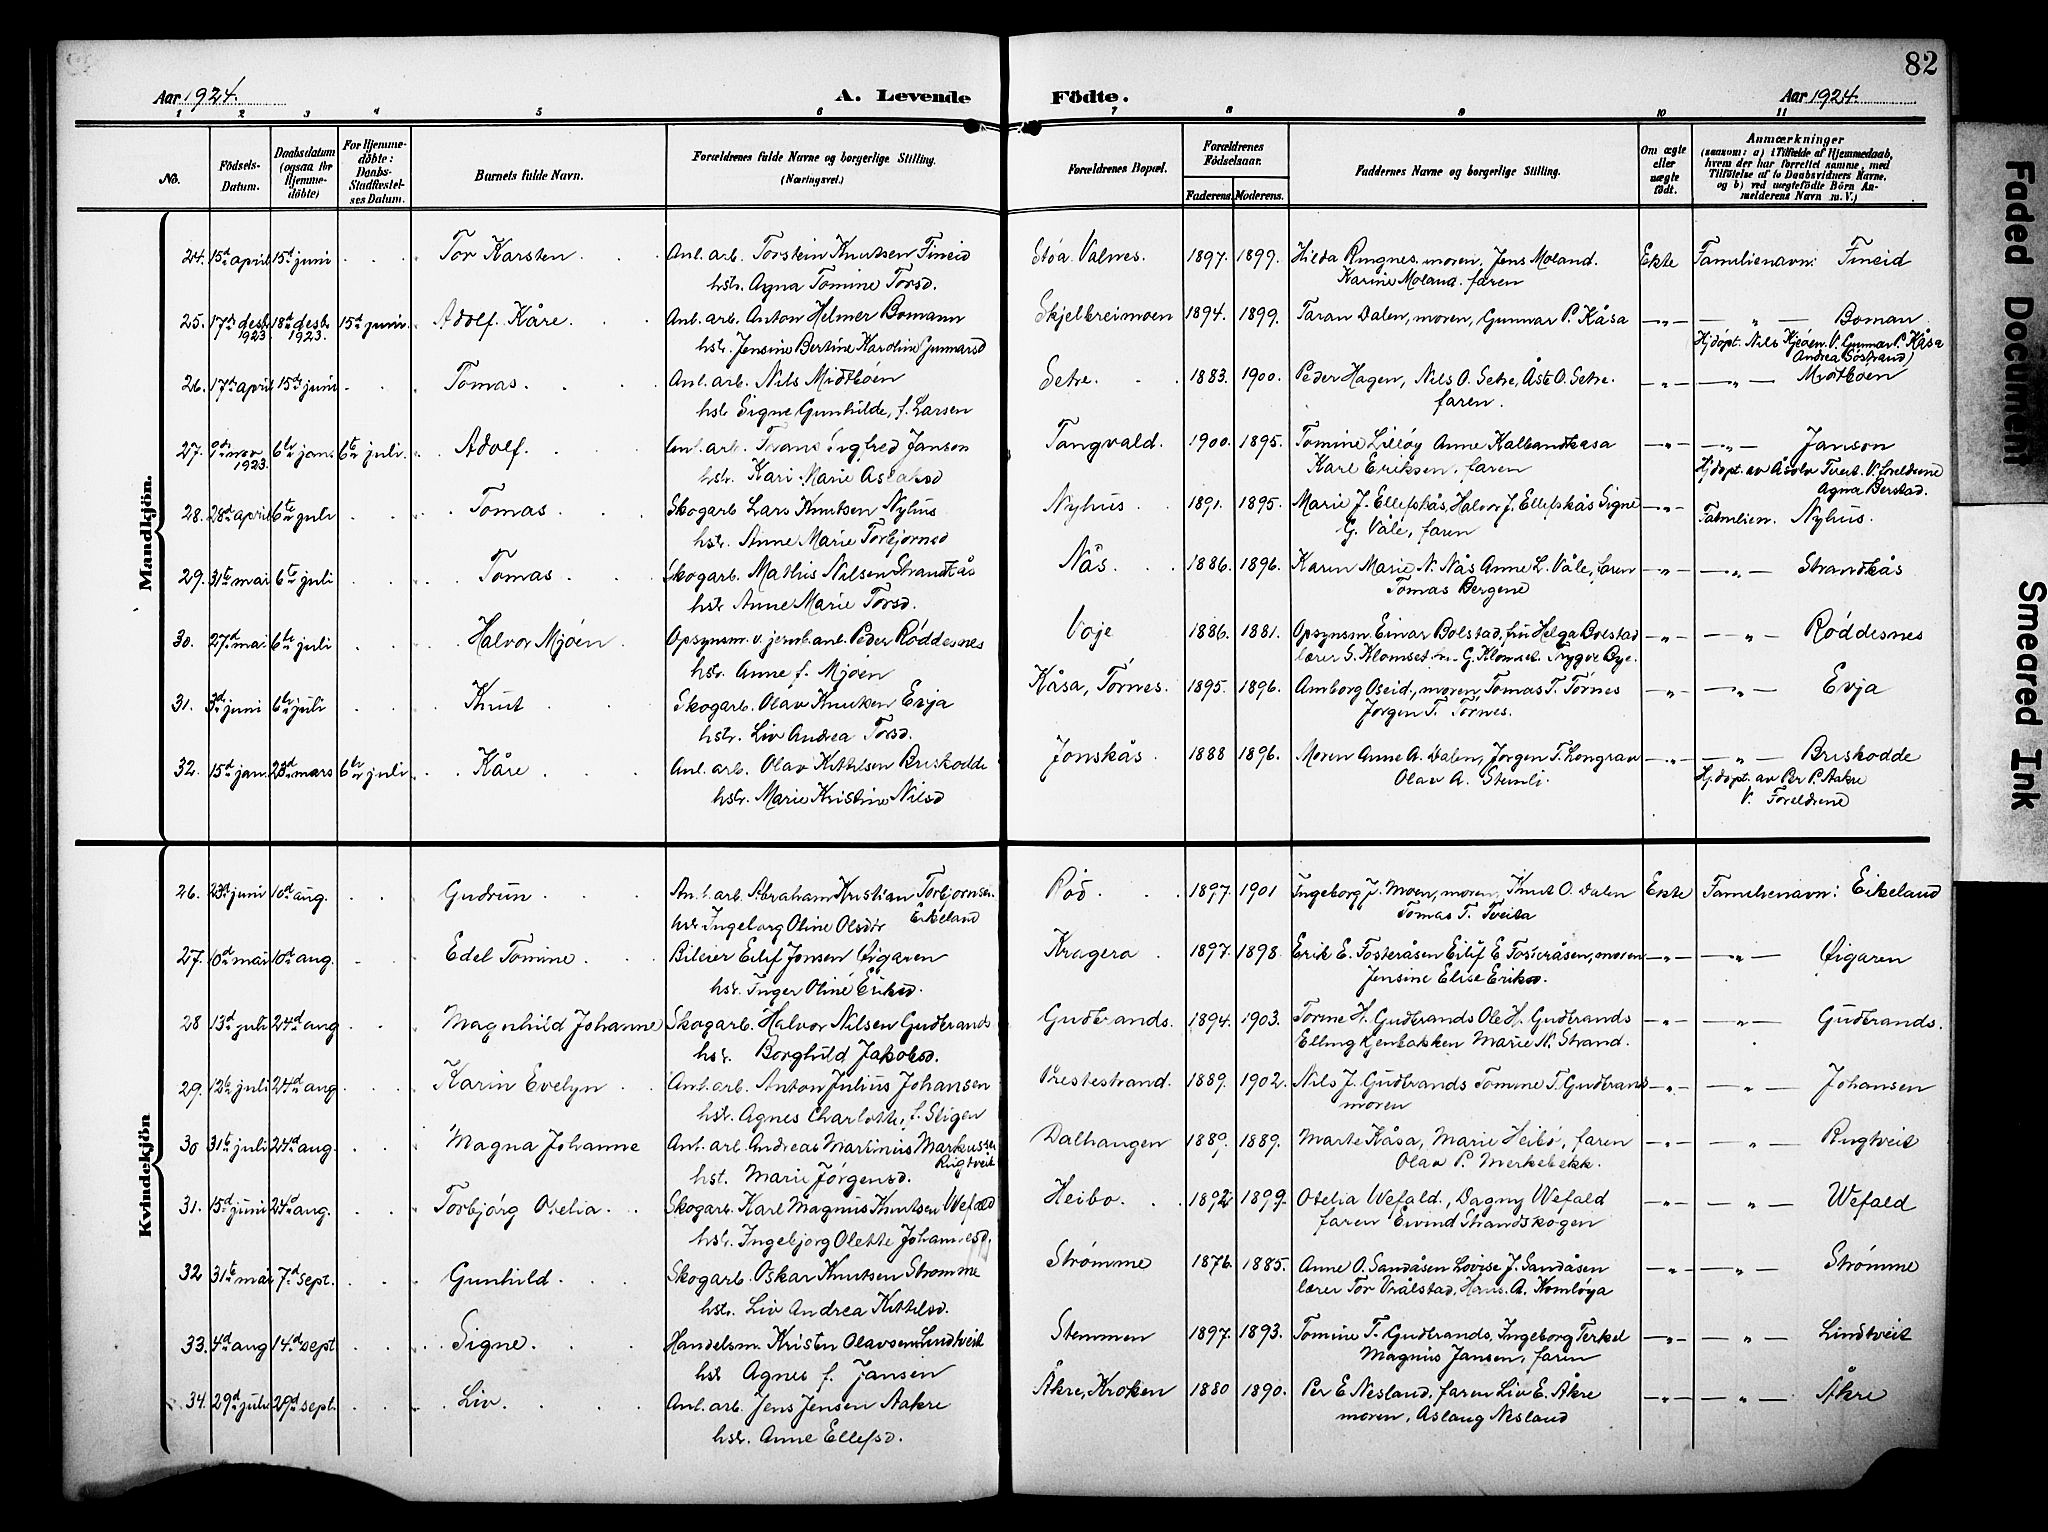 82
Aar 1924.
A. Levende Födte.
Aar 1924.
1 2 3 4 5 6 7 8 9 10 11
No.
Födsels-Datum.
Daabsdatum (ogsaa for Hjemme-döbte)
For Hjemme-döbte: Daabs-Stadfæstel-ses Datum.
Barnets fulde Navn.
Forældrenes fulde Navne og borgerlige Stilling. (Næringsvei.)
Forældrenes Bopæl.
Forældrenes Födselsaar.
Faderens. Moderens.
Faddernes Navne og borgerlige Stilling.
Om ægte eller uægte födt.
Anmærkninger
(saasom: a) i Tilfælde af Hjemmedaab, hvem der har forrettet samme, med Tilföielse af to Daabsvidners Navne, og b) ved uægtefödte Börn An-melderens Navn m. V.)
Mandkjön.
24. 15de april 15de juni Tor Karsten Anl. arb. Torstein Knutsen Fineid Stóa Valnes. 1897. 1899. Hilda Ringnes, moren, Jens Moland. Ekte Familienavn: Fineid
hstr. Agna Tomine Torsd. Karine Moland, faren
25. 17de desb. 1923 18de desb. 1923. 15de juni Adolf Kåre. Anl. arb. Anton Helmer Bomann Skjelbreimoen 1894. 1899. Taran Dalen, moren, Gunnar P. Kåsa —„— —„— Boman.
hstr. Jensine Bertine Karoline Gunnarsd Hjdöpt. Nils Kjeöen. V. Gunnar P. Kåsa
Andrea Söstrand)
26. 17de april 15de juni Tomas. Anl. arb. Nils Midtböen Setre. 1883. 1900. Peder Hagen, Nils O. Setre, Åste O. Setre. —„— —„— Midtböen
hstr Signe Gunhilde, f. Larsen faren.
27. 9de nov 1923. 6te jan. 6te juli. Adolf. Anl. arb. Frans Ingfred Janson Tangvald. 1900. 1895. Tomine Lillöy Anne Kalbandkasa —„— —„— Janson
hstr. Kari Marie Aslaksd Karl Eriksen, faren Hjdöpt. av Åsolv Tveit. V. foreldrene
Agna Berstad.
28. 28de april 6te juli Tomas Skogarb Lars Knutsen Nyhus Nyhus 1891. 1895. Marie J. Ellefskås, Halvor J. Ellefskås Signe —„— Familien. Nyhus.
hstr. Anne Marie Torbjörnsd G. Våle, faren
29. 31te mai 6te juli Tomas Skogarb. Mathis Nilsen Strandkås Nås. 1886. 1896. Karen Marie N. Nås Anne L. Våle, faren —„— —„— Strandkås
hstr Anne Marie Torsd. Tomas Bergene
30. 27de mai. 6te juli Halvor Mjöen Opsynsm. v. jernb.anl. Peder Röddesnes Voje 1886. 1881. Opsynsm. Einar Bolstad, fru Helga Bolstad —„— —„— Röddesnes
hstr. Anne f. Mjöen lærer S. Klomset fru G. Klomset. Trygve Bye.
31. 3de juni 6te juli Knut Skogarb. Olav Knutsen Evja Kåsa, Törnes. 1895. 1896. Amborg Oseid., moren, Tomas T. Törnes —„— —„— Evja
hstr. Liv Andrea Torsd. Jörgen T. Törnes.
32. 15de jan. 23de mars 6te juli Kåre Anl. arb. Olav Kittilsen Briskodde Jonskås 1888 1896. Moren Anne A. Dalen, Jörgen T. Longrav —„— —„— Briskodde
hstr. Marie Kristine Nilsd Olav A. Stemli. Hj.döpt. av Per P. Aakre
V. Foreldrene
Kvindekjön
26. 23de juni 10de aug. Gudrun Anl. arb. Abraham Kristian Torbjornsen Röd 1897. 1901 Ingeborg J. Moen, moren, Knut O. Dalen Ekte Familienavn: Eikeland
hstr Ingeborg Oline Olsdtr Eikeland Tomas T. Tveita
27. 10de mai 10de aug. Edel Tomine Bileier Eilif Jensen Øigaren Kragerø 1897. 1898 Erik E. Fosteråsen Eilif E Fosteråsen, moren —„— —„— Øigaren
hstr. Inger Oline Eriksd. Jensine Elise Eriksd.
28 13de juli 24de aug Magnhild Johanne Skogarb. Halvor Nilsen Gudbrands Gudbrands. 1894. 1903. Torine H. Gudbrands Ole H. Gudbrands —„— —„— Gudbrands.
hstr. Borghild Jakobsd. Elling Kjenbakken Marie N. Strand.
29. 12te juli 24de aug Karin Evelyn Anl. arb. Anton Julius Johansen Prestestrand. 1889. 1902. Nils J. Gudbrands Tomine T. Gudbrands —„— —„— Johansen
hstr. Agnes Charlotte, f. Stigen moren
30 31te juli 24de aug. Magna Johanne Anl. arb. Andreas Martinius Markussen Dalhaugen 1880. 1889. Marte Kåsa, Marie Heibö, faren —„— —„— Rugtveit
Rugtveit
hst. Marie Jörgensd. Olav P. Merkebekk.
31. 15de juni 24de aug. Torbjörg Otelia Skogarb. Karl Magnus Knutsen Wefald Heibø. 1892 1899. Otelia Wefald, Dagny Wefald —„— —„— Wefald
hstr. Ingebjorg Olette Johannesd. faren Eivind Strandskogen
32 31te mai 7de sept. Gunhild Skogarb. Oskar Knutsen Strømme Strømme 1876. 1885. Anne O. Sandåsen Lovise J. Sandåsen —„— —„— Strømme
hstr. Liv Andrea Kittilsd. lærer Tor Vrålstad, Hans. A. Homlöya
33. 4de aug 14de sept Signe Handelsm. Kristen Olavsen Lindtveit Stemmen 1897. 1893. Tomine T. Gudbrands, Ingeborg Terkel —„— —„— Lindtveit
hstr Agnes f. Jansen Magnus Jansen, faren
34. 29de juli 29de sept. Liv Anl. arb. Jens Jensen Aakre Åkre, Kroken 1880 1890. Per E Nesland, faren Liv E. Åkre —„— —„— Åkre
hstr. Anne Ellefsd. moren, Aslaug Nesland
Faded Document
Smeared Ink